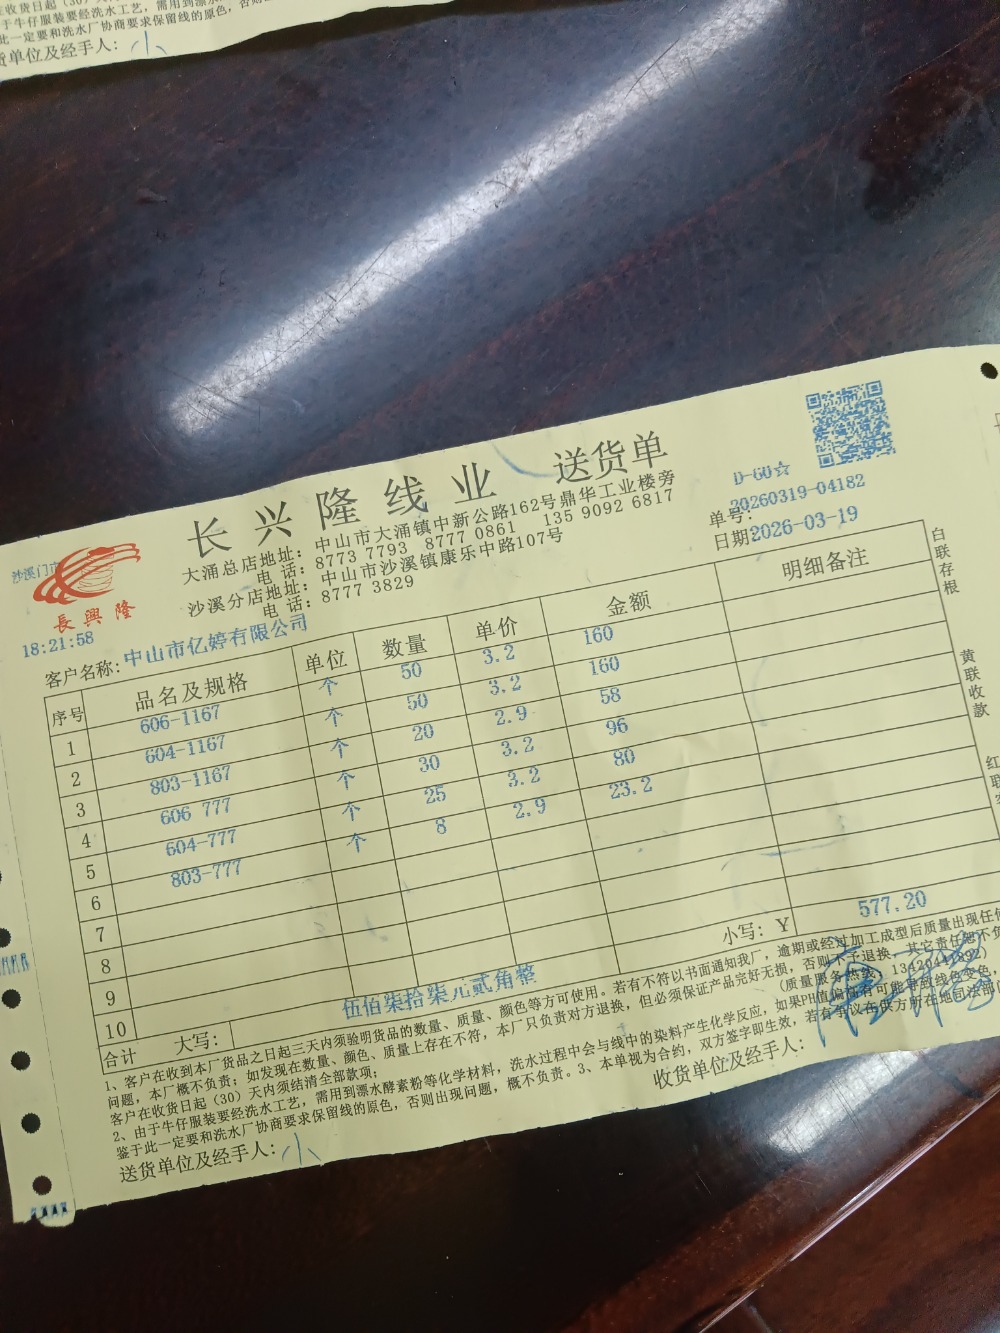 收货日起(30)天
牛仔服装要经洗水工艺，需用到漂水
此一定要和洗水厂协商要求保留线的原色，否则
货单位及经手人：小
长兴隆线业 送货单
大涌总店地址：中山市大涌镇中新公路162号鼎华工业楼旁
电话：8773 7793 8777 0861 135 9092 6817
沙溪分店地址：中山市沙溪镇康乐中路107号
电话：8777 3829
D-60☆
单号：20260319-04182
日期：2026-03-19
沙溪门市
長興隆
18:21:58
客户名称：中山市亿婷有限公司
序号 品名及规格 单位 数量 单价 金额 明细备注
1 606-1167 个 50 3.2 160
2 604-1167 个 50 3.2 160
3 803-1167 个 20 2.9 58
4 606 777 个 30 3.2 96
5 604-777 个 25 3.2 80
6 803-777 个 8 2.9 23.2
7
8
9
10
合计 大写：伍佰柒拾柒元贰角整 小写：¥ 577.20
1、客户在收到本厂货品之日起三天内须验明货品的数量、质量、颜色等方可使用。若有不符以书面通知我厂，逾期或经过加工成型后质量出现任何
问题，本厂概不负责；如发现在数量、颜色、质量上存在不符，本厂只负责对方退换，但必须保证产品完好无损，否则不予退换，其它责任恕不负
客户在收货日起（30）天内须结清全部款项；
（质量服务热线：13420441892）
2、由于牛仔服装要经洗水工艺，需用到漂水酵素粉等化学材料，洗水过程中会与线中的染料产生化学反应，如果PH值偏高有可能导致线色变色，
鉴于此一定要和洗水厂协商要求保留线的原色，否则出现问题，概不负责。3、本单视为合约，双方签字即生效，若有争议在供方所在地司法部门
送货单位及经手人：小
收货单位及经手人：
白联存根
黄联收款
红联